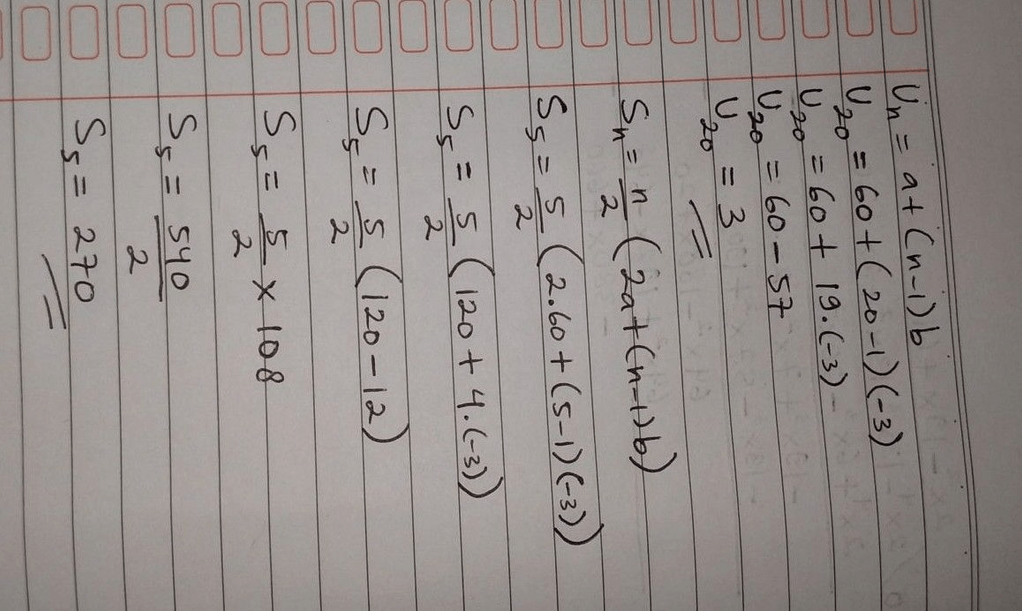 Un = a + (n-1)b
U20 = 60 + (20-1)(-3)
U20 = 60 + 19.(-3)
U20 = 60 - 57
U20 = 3
Sn = n/2 (2a + (n-1)b)
S5 = 5/2 (2.60 + (5-1)(-3))
S5 = 5/2 (120 + 4.(-3))
S5 = 5/2 (120 - 12)
S5 = 5/2 × 108
S5 = 540/2
S5 = 270